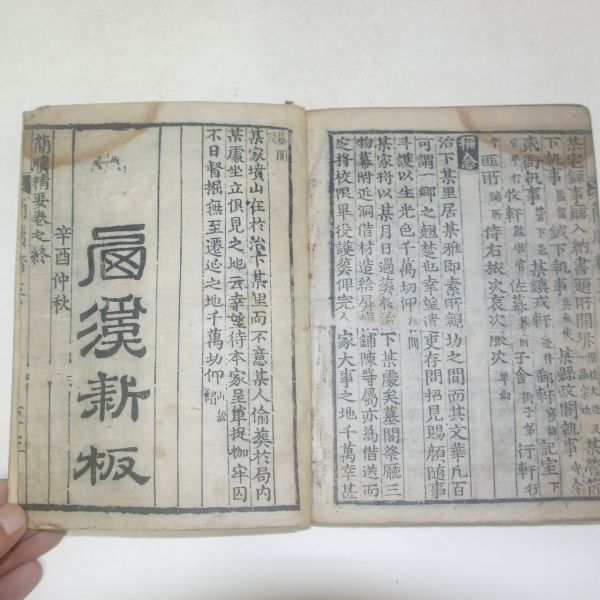 某宅錄事廳入納書題所開坼
下執事 鉞下執事 某縣政閤執事 守令
東衙執事 某鎭戎軒 郵軒 記室 下
牧軒 監牧官 佐幕 子舍 行軒 行
匪所 謫所 侍右旅次哀次服次 卑幼
稱念
治下某里居某雅即素所親切之間而其文華凡百
可謂一鄉之翹楚也幸望淸更存問招見賜顔隨事
斗護以生光色千萬切仰
某家將以某月日過葬於治下某處矣墓閣祭廳三
物幕附近洞借材造給屛帳鋪陳等屬亦為借送而
定將校限畢役護葬仰完人家大事之地千萬幸甚
某家墳山在於治下某里而不意某人偷葬於局內
某處坐立俱見之地云幸望待本家呈單捉枷牢囚
不日督掘無至遷延之地千萬切仰 山訟
新板
辛酉仲秋
簡牘精要卷之終